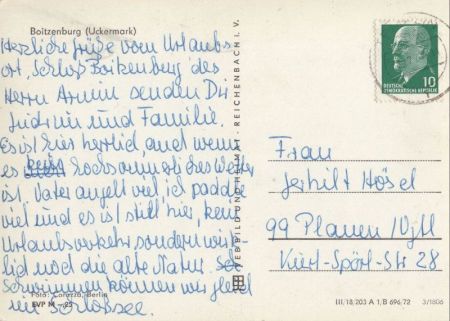 Boitzenburg (Uckermark)
Herzliche Grüße vom Urlaubs
ort, Schloß Boizenburg des
Herrn Arnim senden Dir
und Familie.
Es ist hier herrlich, auch wenn
es kein Hochsommerliches Wetter
ist. Vater angelt viel, ich paddle
viel und es ist still hier, kein
Urlaubsverkehr sondern wirk
lich noch die alte Natur.
Schwimmen können wir gleich
im Schloßsee.
Foto: Carozza, Berlin
EVP M -,25
VEB BILD UND HEIMAT · REICHENBACH i. V.
10
DEUTSCHE
DEMOKRATISCHE REPUBLIK
Frau
Gerhilt Hösel
99 Plauen /Vgtl
Kurt-Spört-Str 28
III/18/203 A 1/B 696/72
3/1806